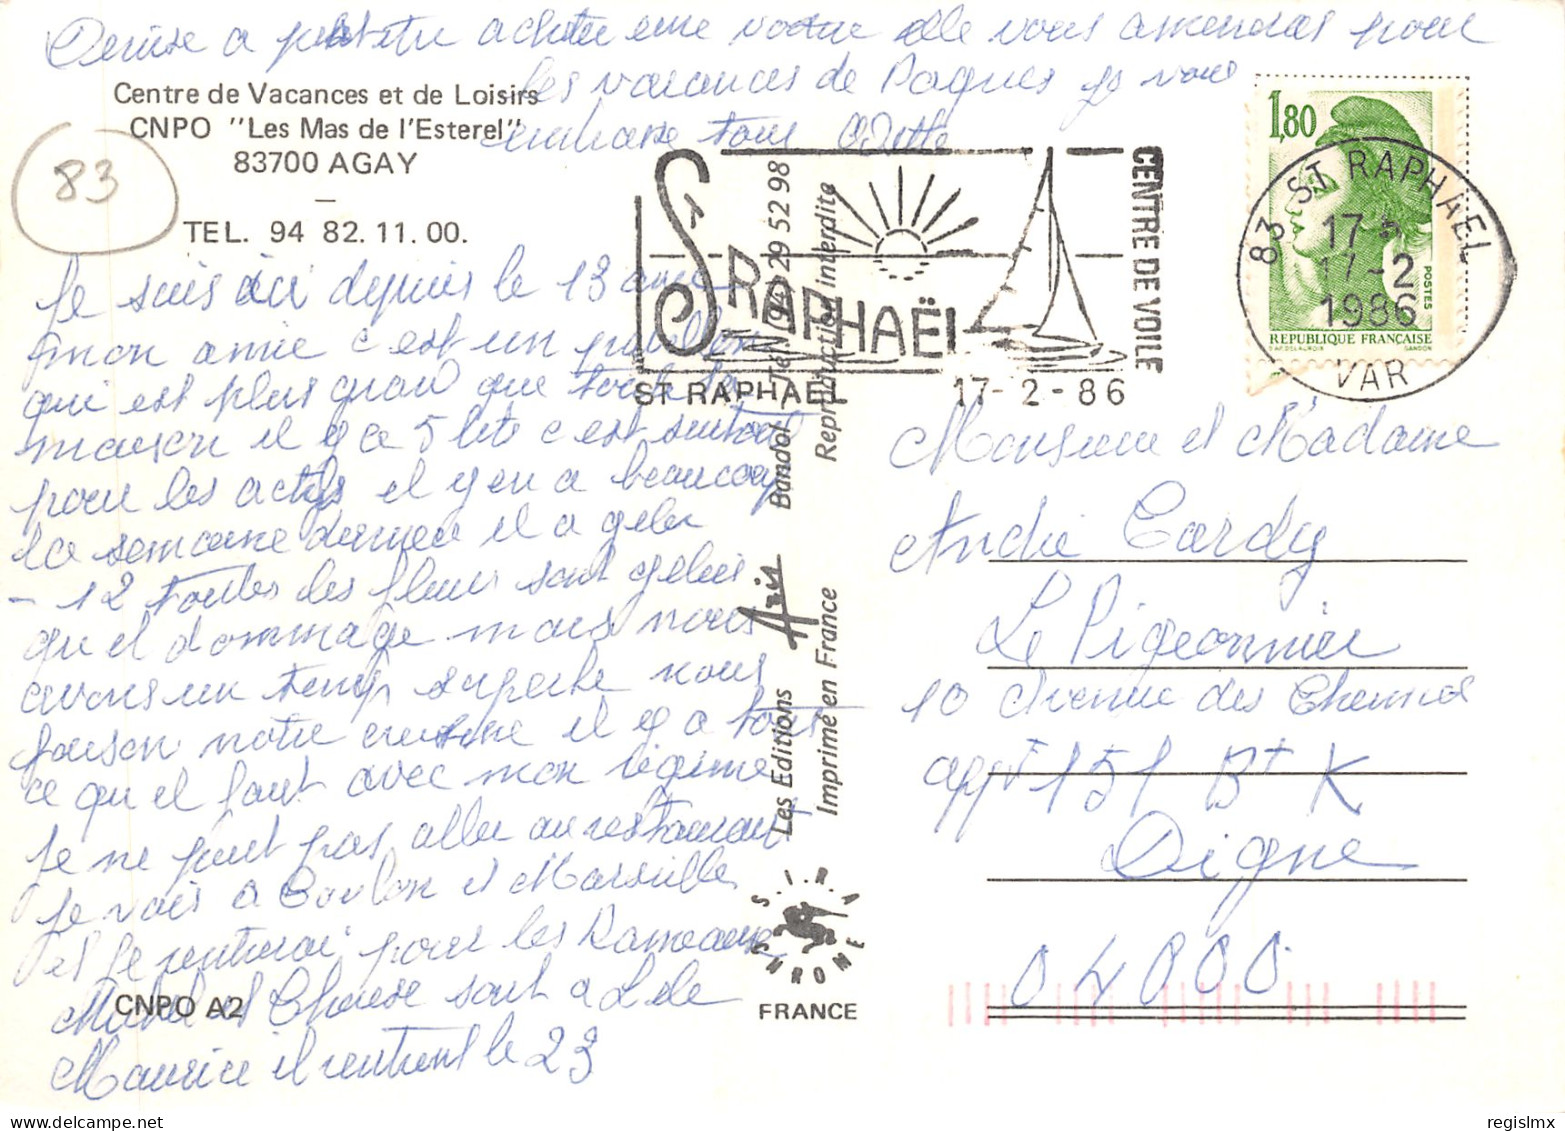 Denise a acheter une voiture elle vous amenerai pour
les vacances de Paques je vous
embrasse tous Odette
Centre de Vacances et de Loisirs
CNPO "Les Mas de l'Esterel"
83700 AGAY
TEL. 94 82.11.00.
83
Je suis ici depuis le 13 avec
mon amie c est un pavillon
qui est plus grand que toute la
maison il y a 5 lits c est surtout
pour les il y en a beaucoup
la semaine derniere il a geler
- 12 toutes les fleurs sont gelees
quel dommage mais nous
avons un temp superbe nous
faison notre cuisine il y a tous
ce qu il faut avec mon régime
je ne peut pas aller au restaurant
je vais a Toulon et Marseille
et je rentrerai pour les Rameaux
Michel et sont a Lile
Maurice il rentrent le 23
CNPO A2
Les Editions Aris Bandol Tél. (94) 29 52 98
Imprimé en France Reproduction interdite
S.I.R.A. CHROME
FRANCE
ST RAPHAËL
CENTRE DE VOILE
ST RAPHAEL 17-2-86
1,80
RÉPUBLIQUE FRANÇAISE
POSTES
D'AP. DELACROIX GANDON
83 ST RAPHAEL
17 H
17-2
1986
VAR
Monsieur et Madame
André Cardy
Le Pigeonnier
10 Avenue des Chemins
appt 151 Bt K
Digne
04000
regislmx